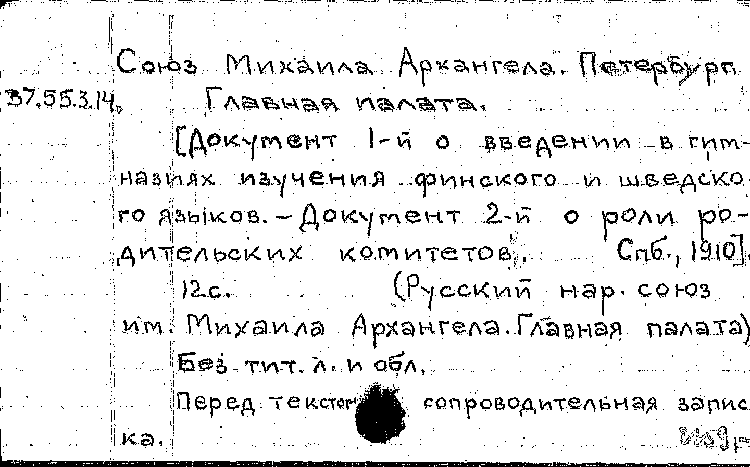 Союз Михаила Архангела. Петербург.
37.55.3.14. Главная палата.
[Документ 1-й о введении в гим-
назиях изучения финского и шведско-
го языков. – Документ 2-й о роли ро-
дительских комитетов. Спб., 1910].
12с. (Русский нар. союз
им. Михаила Архангела. Главная палата)
Без тит. л. и обл.
Перед текстом сопроводительная запис
ка.